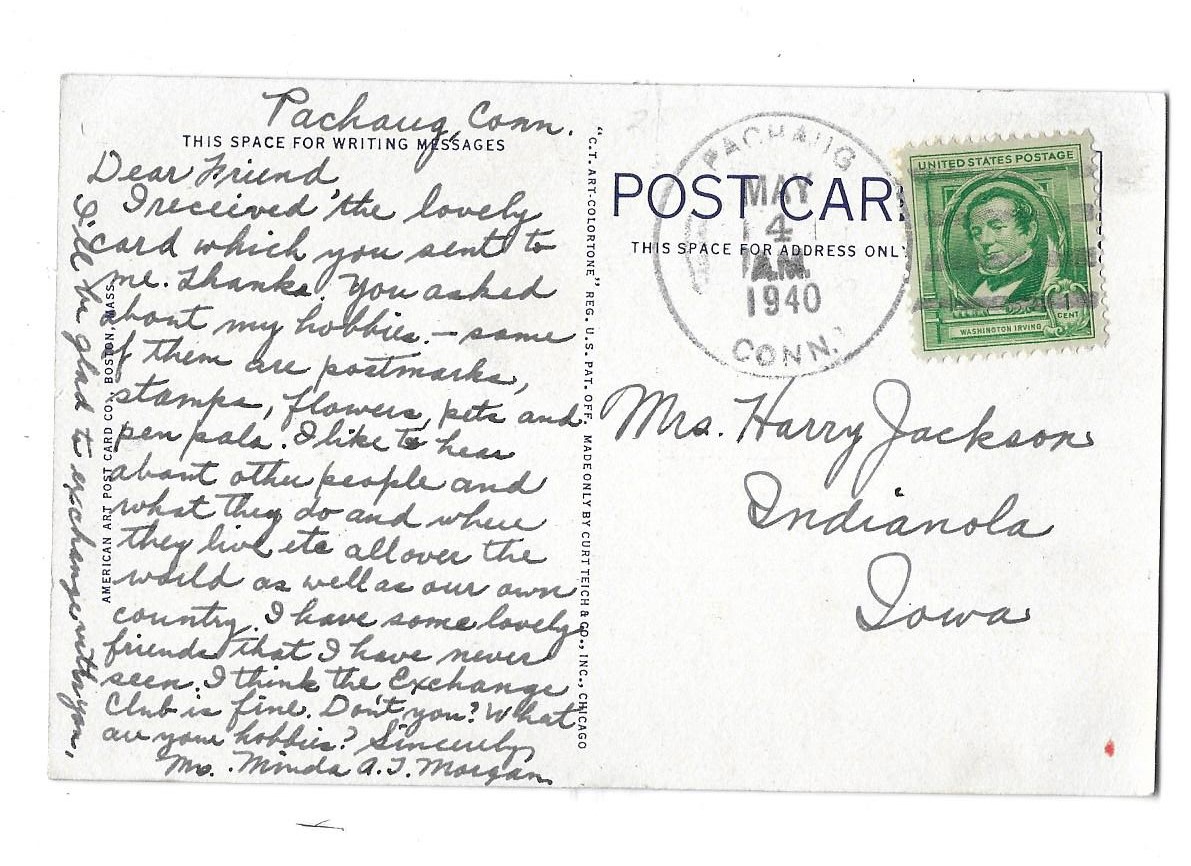 Pachaug, Conn.
THIS SPACE FOR WRITING MESSAGES
Dear Friend
I received the lovely
card which you sent to
me. Thanks. You asked
about my hobbies. – some
of them are postmarks,
stamps, flowers, pets and
pen pals. I like to hear
about other people and
what they do and where
they live etc all over the
world as well as our own
country. I have some lovely
friends that I have never
seen. I think the Exchange
Club is fine. Don't you? What
are your hobbies? Sincerely,
Mrs. Minda A. T. Morgan
I'll be glad to exchange with you,
AMERICAN ART POST CARD CO., BOSTON, MASS.
"C.T. ART-COLORTONE" REG. U.S. PAT. OFF. MADE ONLY BY CURT TEICH & CO., INC., CHICAGO
POST CAR
THIS SPACE FOR ADDRESS ONLY
PACHAUG
MAY
4
A.M.
1940
CONN.
UNITED STATES POSTAGE
1
CENT
WASHINGTON IRVING
Mrs. Harry Jackson
Indianola
Iowa